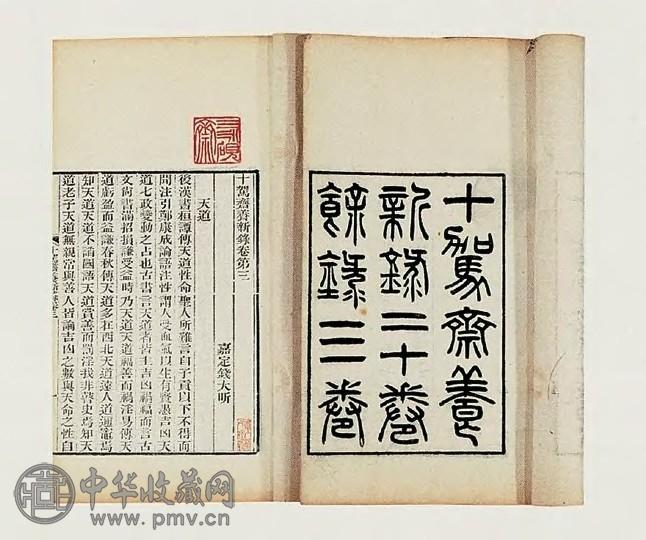 十駕齋養
新錄二十卷
餘錄三卷
十駕齋養新錄卷第三
嘉定錢大昕
天道
後漢書桓譚傳天道性命聖人所難言自子貢以下不得而
聞注引鄭康成論語注性謂人受血氣以生有賢愚吉凶天
道七政變動之占也古書言天道者皆主吉凶禍福而言古
文尚書滿招損謙受益時乃天道天道福善而禍淫易傳天
道虧盈而益謙春秋傳天道多在西北天道遠人道邇竈焉
知天道天道不謟國語天道賞善而罰淫我非瞽史焉知天
道老子天道無親常與善人皆論吉凶之數與天命之性自
中华收藏网
www.pmv.cn